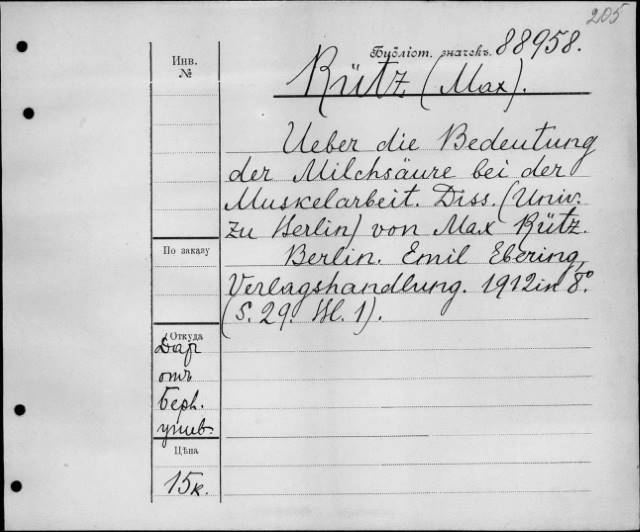 205
Инв. №
Библіот. значекъ. 88958.
Rütz (Max).
Ueber die Bedeutung
der Milchsäure bei der
Muskelarbeit. Diss. (Univ.
zu Berlin) von Max Rütz.
По заказу
Berlin. Emil Ebering,
Verlagshandlung. 1912 in 8.º
(S. 29. Bl. 1).
Откуда
Даръ
отъ
Берл.
унив.
Цѣна
15к.